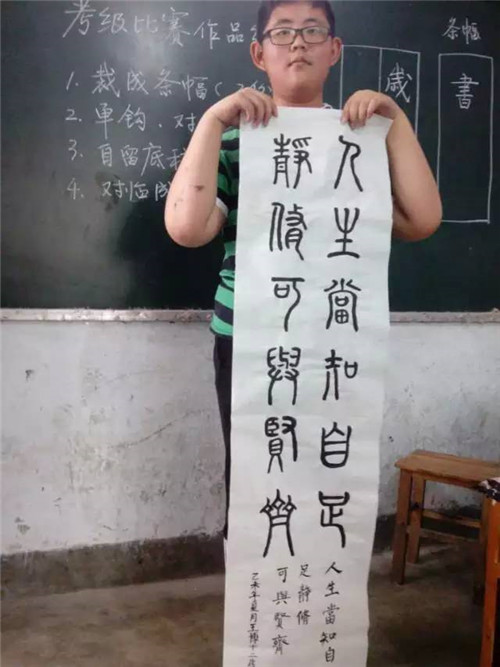 考级比赛作品
1. 裁成条幅(
2. 单钩、对
3. 自留底
4. 对临成
歲
条幅
書
人生當知自足
靜脩可與賢齊
人生當知自
足靜脩
可與賢齊
乙未年夏月王 十二歲